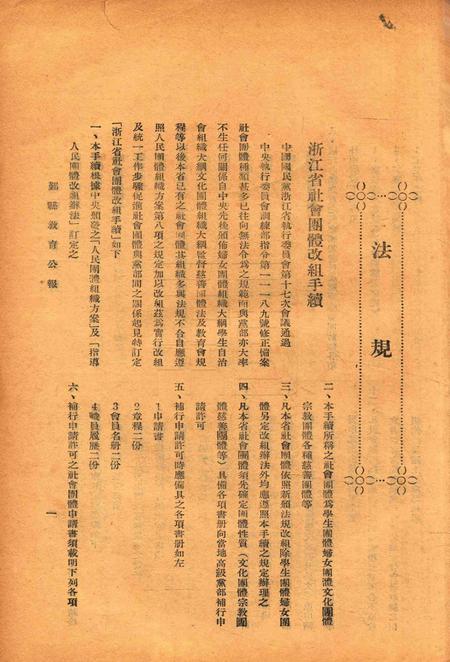 法規
浙江省社會團體改組手續
中國國民黨浙江省執行委員會第十七次會議通過
中央執行委員會訓練部指令第一一一八九號修正備案
社會團體種類甚多已往向無法令為之規範而與黨部亦大率
不生任何關係自中央先後頒佈婦女團體組織大綱學生自治
會組織大綱文化團體組織大綱監督慈善團體法及教育會規
程等以後本省已有之社會團體其組織多與法規不合自應遵
照人民團體組織方案第八項之規定加以改組茲為實行改組
及統一工作步驟促進社會團體與黨部間之關係起見特訂定
「浙江省社會團體改組手續」如下
一、本手續根據中央頒發之「人民團體組織方案」及「指導
人民團體改組辦法」訂定之
鄞縣教育公報
二、本手續所稱之社會團體為學生團體婦女團體文化團體
宗教團體各種慈善團體等
三、凡本省社會團體依照新頒法規改組除學生團體婦女團
體另定改組辦法外均應遵照本手續之規定辦理之
四、凡本省社會團體須先確定團體性質（文化團體宗教團
體慈善團體等）具備各項書册向當地高級黨部補行申
請許可
五、補行申請許可時應備具之各項書册如左
1申請書
2章程二份
3會員名册二份
4職員履歷二份
六、補行申請許可之社會團體申請書須載明下列各項
一